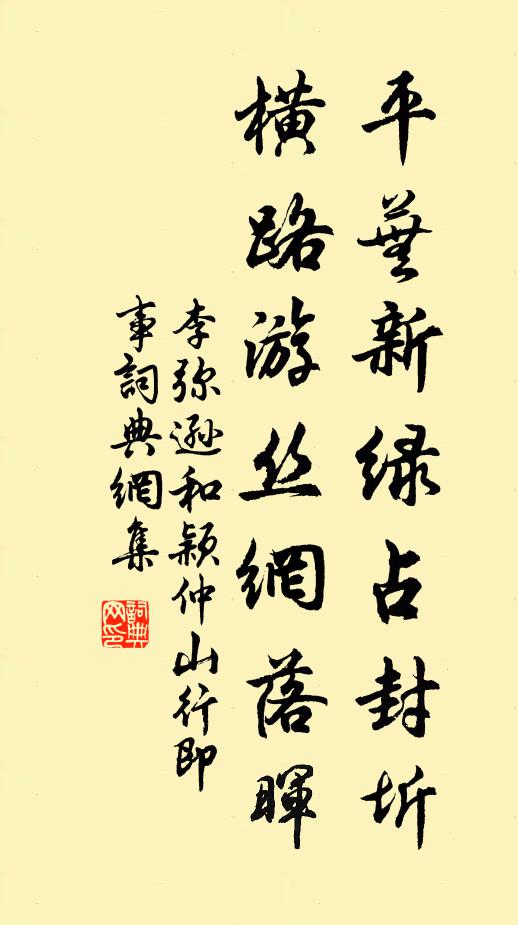 平蕪新绿占封圻
横路游丝網落暉
李弥遜和颖仲山行即
事詞典網集
詞典網印